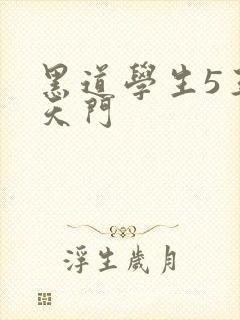 黑道學生5
天門
浮生歲月